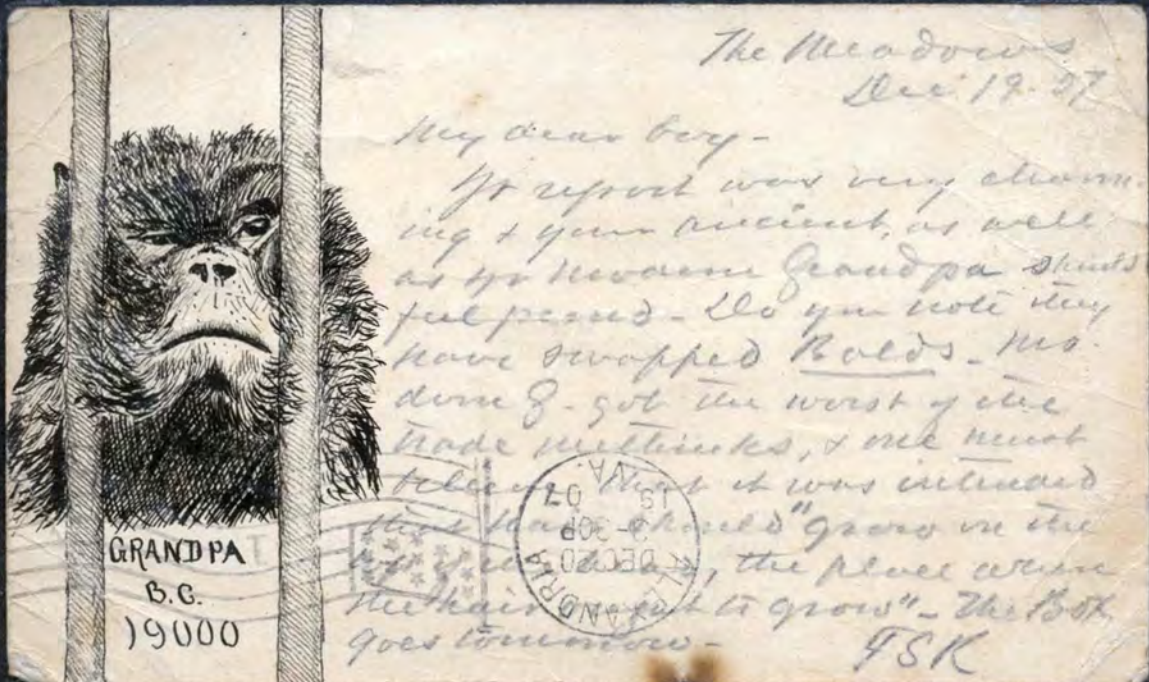 The Meadows
Dec 19. 07
My dear boy -
Yr report was very charm-
ing & your ancient, as well
as yr modern Grandpa should
feel proud - Do you note they
have swapped Balds - Mo-
dern G. got the worst of the
trade methinks, & one must
believe that it was intended
that hair should "grow in the
the place where
the hair ought to grow" - The Box
goes tomorrow -
FSK
GRANDPA
B.C.
19000
ALEXANDRIA
DEC 20
3-30P
19 07
VA.